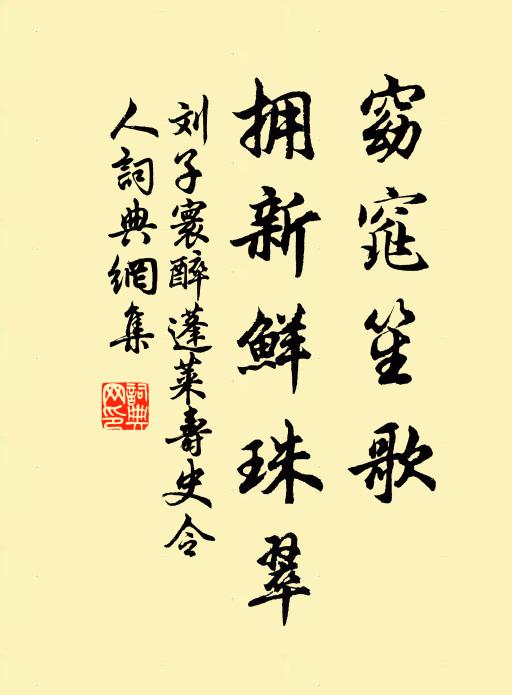 窈窕笙歌
拥新鲜珠翠
刘子寰醉蓬莱壽史令
人詞典網集
詞典
网印